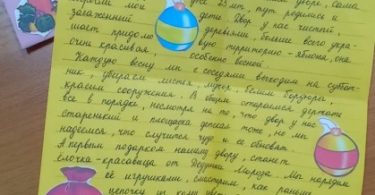 уже 25 лет, тут родился и
дети. Двор у нас чистый,
деревьями, больше всего укра-
шает придомовую территорию - яблоня, она
очень красивая особенно весной.
Каждую весну мы с соседями выходим на суббот-
ник, убираем листья, мусор, белим бордюры,
красим сооружения. В общем стараемся держать
все в порядке, несмотря на то, что двор у нас
старенький и площадка детская тоже, но мы
надеемся, что случится чудо и ее обновят.
А первым подарком нашему двору, станет
елочка-красавица от Дедушки Мороза. Мы нарядим
её игрушками, смотрим, как ранним
цепочку из